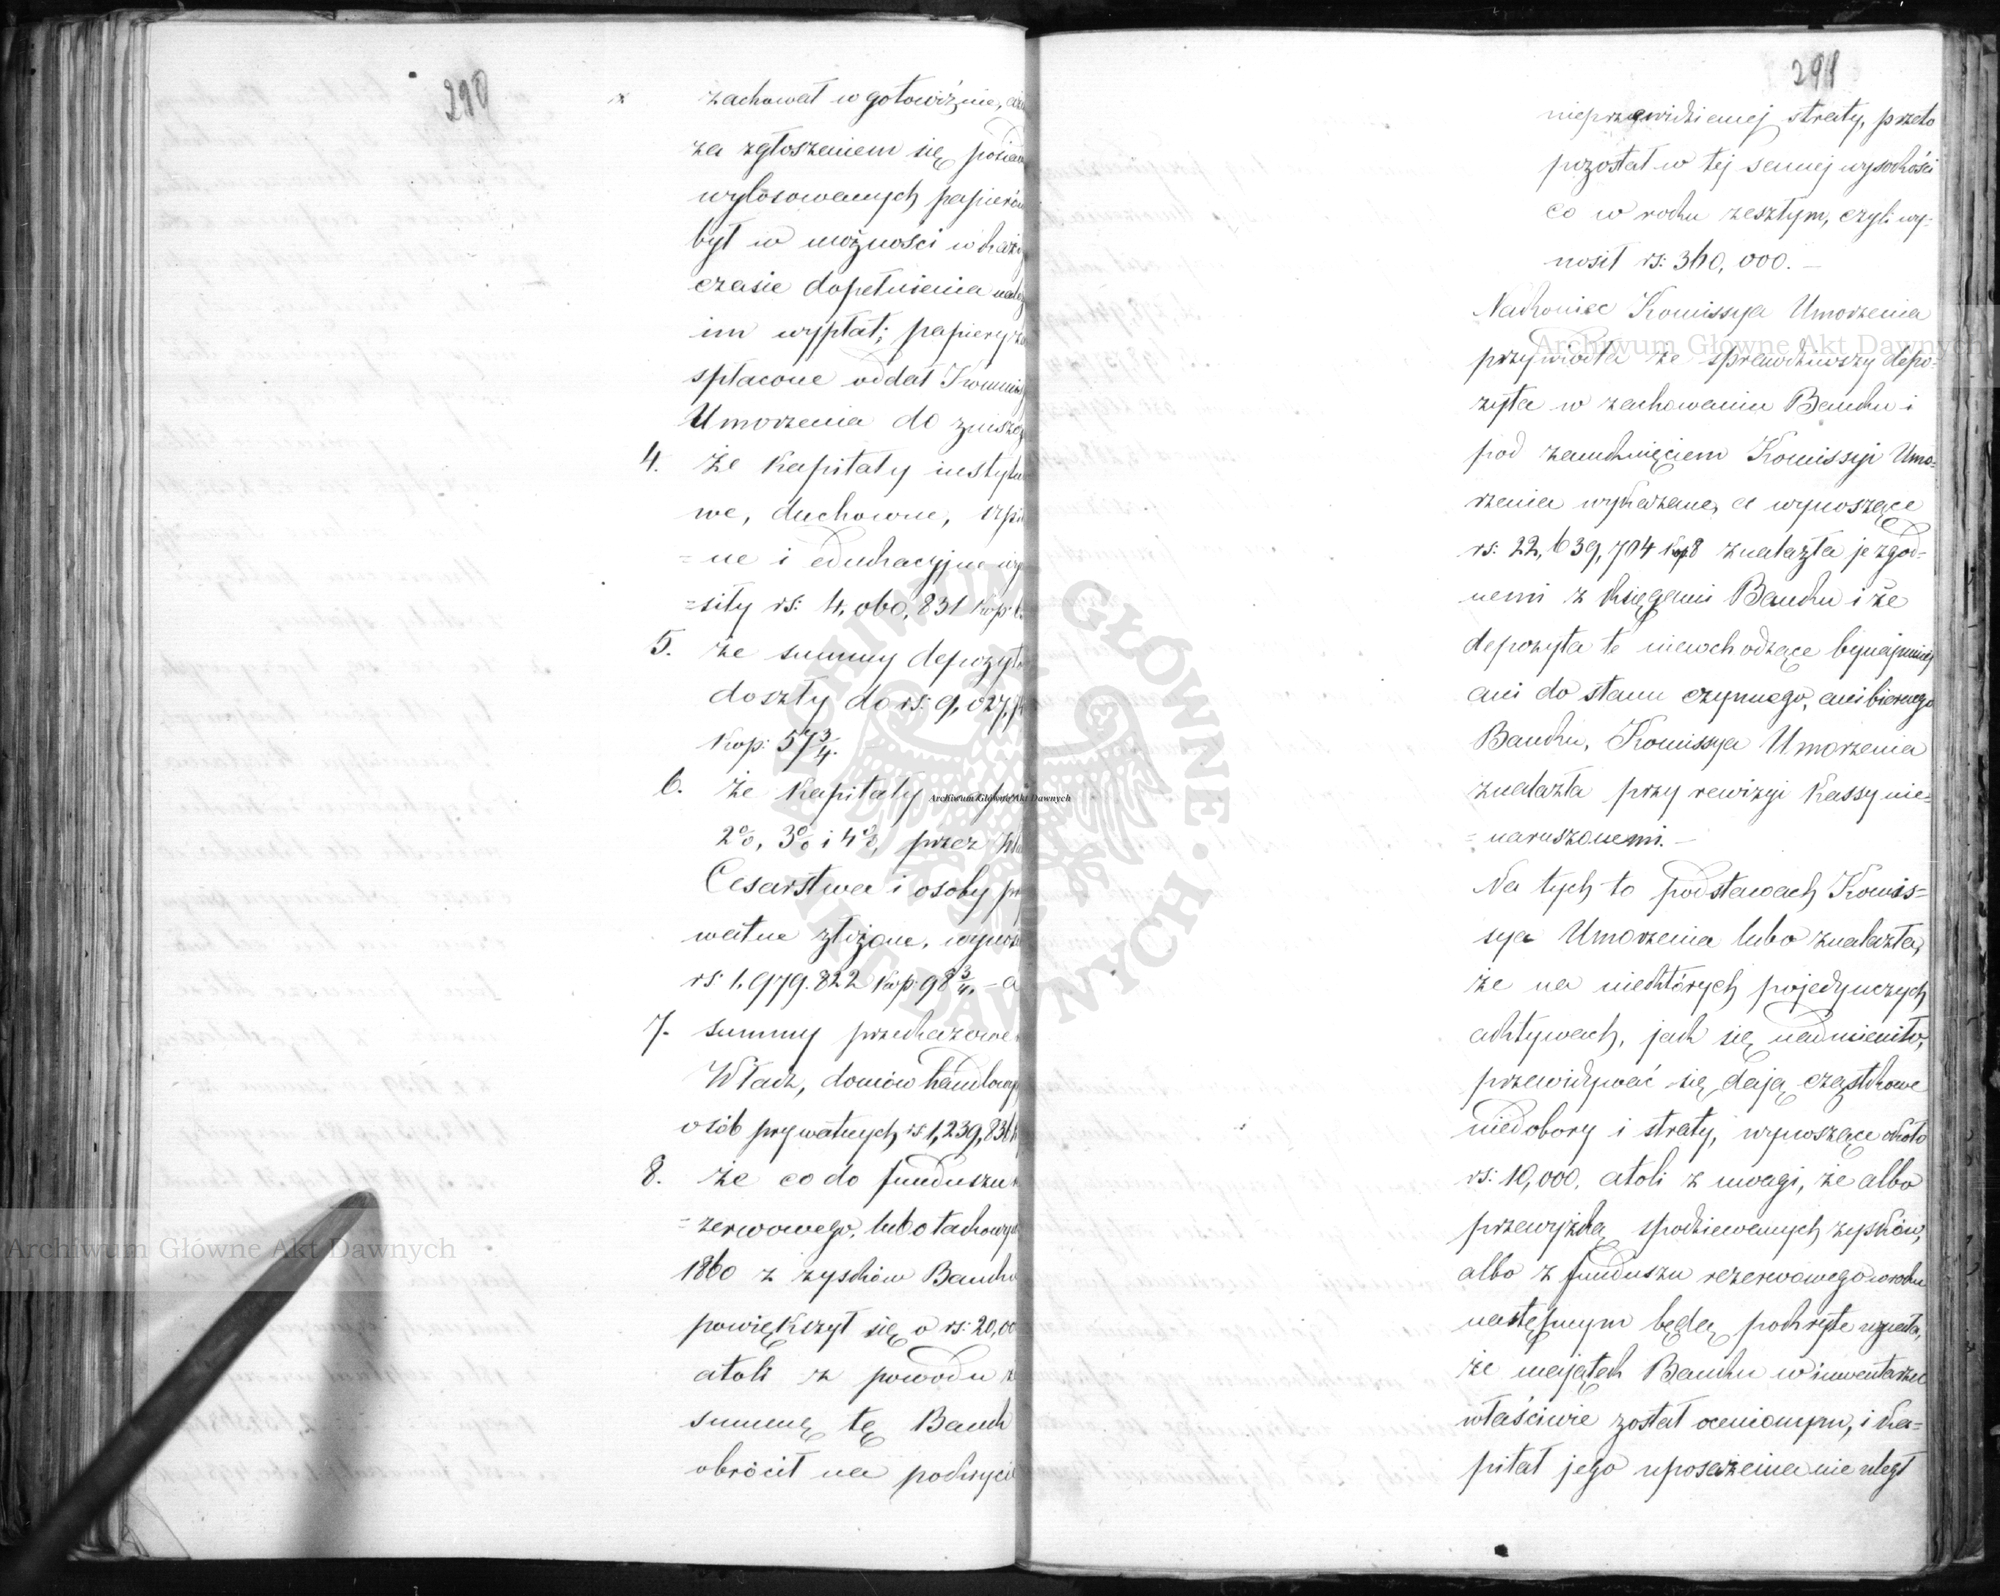 290
zachował w gotowiźnie,
za zgłoszeniem się
wylosowanych papierów
był w możności w każdy
czasie dopełnienia
im wypłat; papiery
spłacone oddał
Umorzenia do
4. że kapitały
we, duchowne,
=ne i edukacyjne
=siły rs: 4,060,831 kop:
5. że summy
doszły do rs: 9,027,
kop: 57 3/4.
6. że kapitały na
2%, 3% i 4%, przez
Cesarstwa i osoby
watne złożone,
rs: 1,979.822 kop: 98 3/4. – a
7. summy przekazowe
Władz, domów
osób prywatnych rs: 1,239,836
8. że co do funduszu
=zerwowego, lubo takowy
1860 z zysków Banku
powiększył się o rs: 20,00
atoli z powodu
summę tę Bank
obrócił na
291
nieprzewidzianej straty, przeto
pozostał w tej samej wysokości
co w roku zeszłym, czyli wy-
nosił rs: 360,000. –
Nakoniec Komissya Umorzenia
przywiodła że sprawdziwszy depo-
zyta w zachowaniu Banku i
pod zamknięciem Komissyi Umo-
rzenia wykazane, a wynoszące
rs: 22,639,704 kop 8 znalazła je zgod-
nemi z księgami Banku i że
depozyta te niewchodzące bynajmniej
ani do stanu czynnego, ani biernego
Banku, Komissya Umorzenia
znalazła przy rewizyi Kassy nie=
=naruszonemi. –
Na tych to podstawach Komis-
sya Umorzenia lubo znalazła,
że na niektórych pojedynczych
aktywach, jak się nadmieniło,
przewidywać się dają cząstkowe
niedobory i straty, wynoszące około
rs: 10,000, atoli z uwagi, że albo
przewyżką spodziewanych zysków,
albo z funduszu rezerwowego w roku
następnym będą pokryte uznała,
że majątek Banku w inwentarzu
właściwie został ocenionym, i ka-
pitał jego uposażenia nie uległ
Archiwum Główne Akt Dawnych
Archiwum Główne Akt Dawnych
Archiwum Główne Akt Dawnych
ARCHIWUM GŁÓWNE AKT DAWNYCH